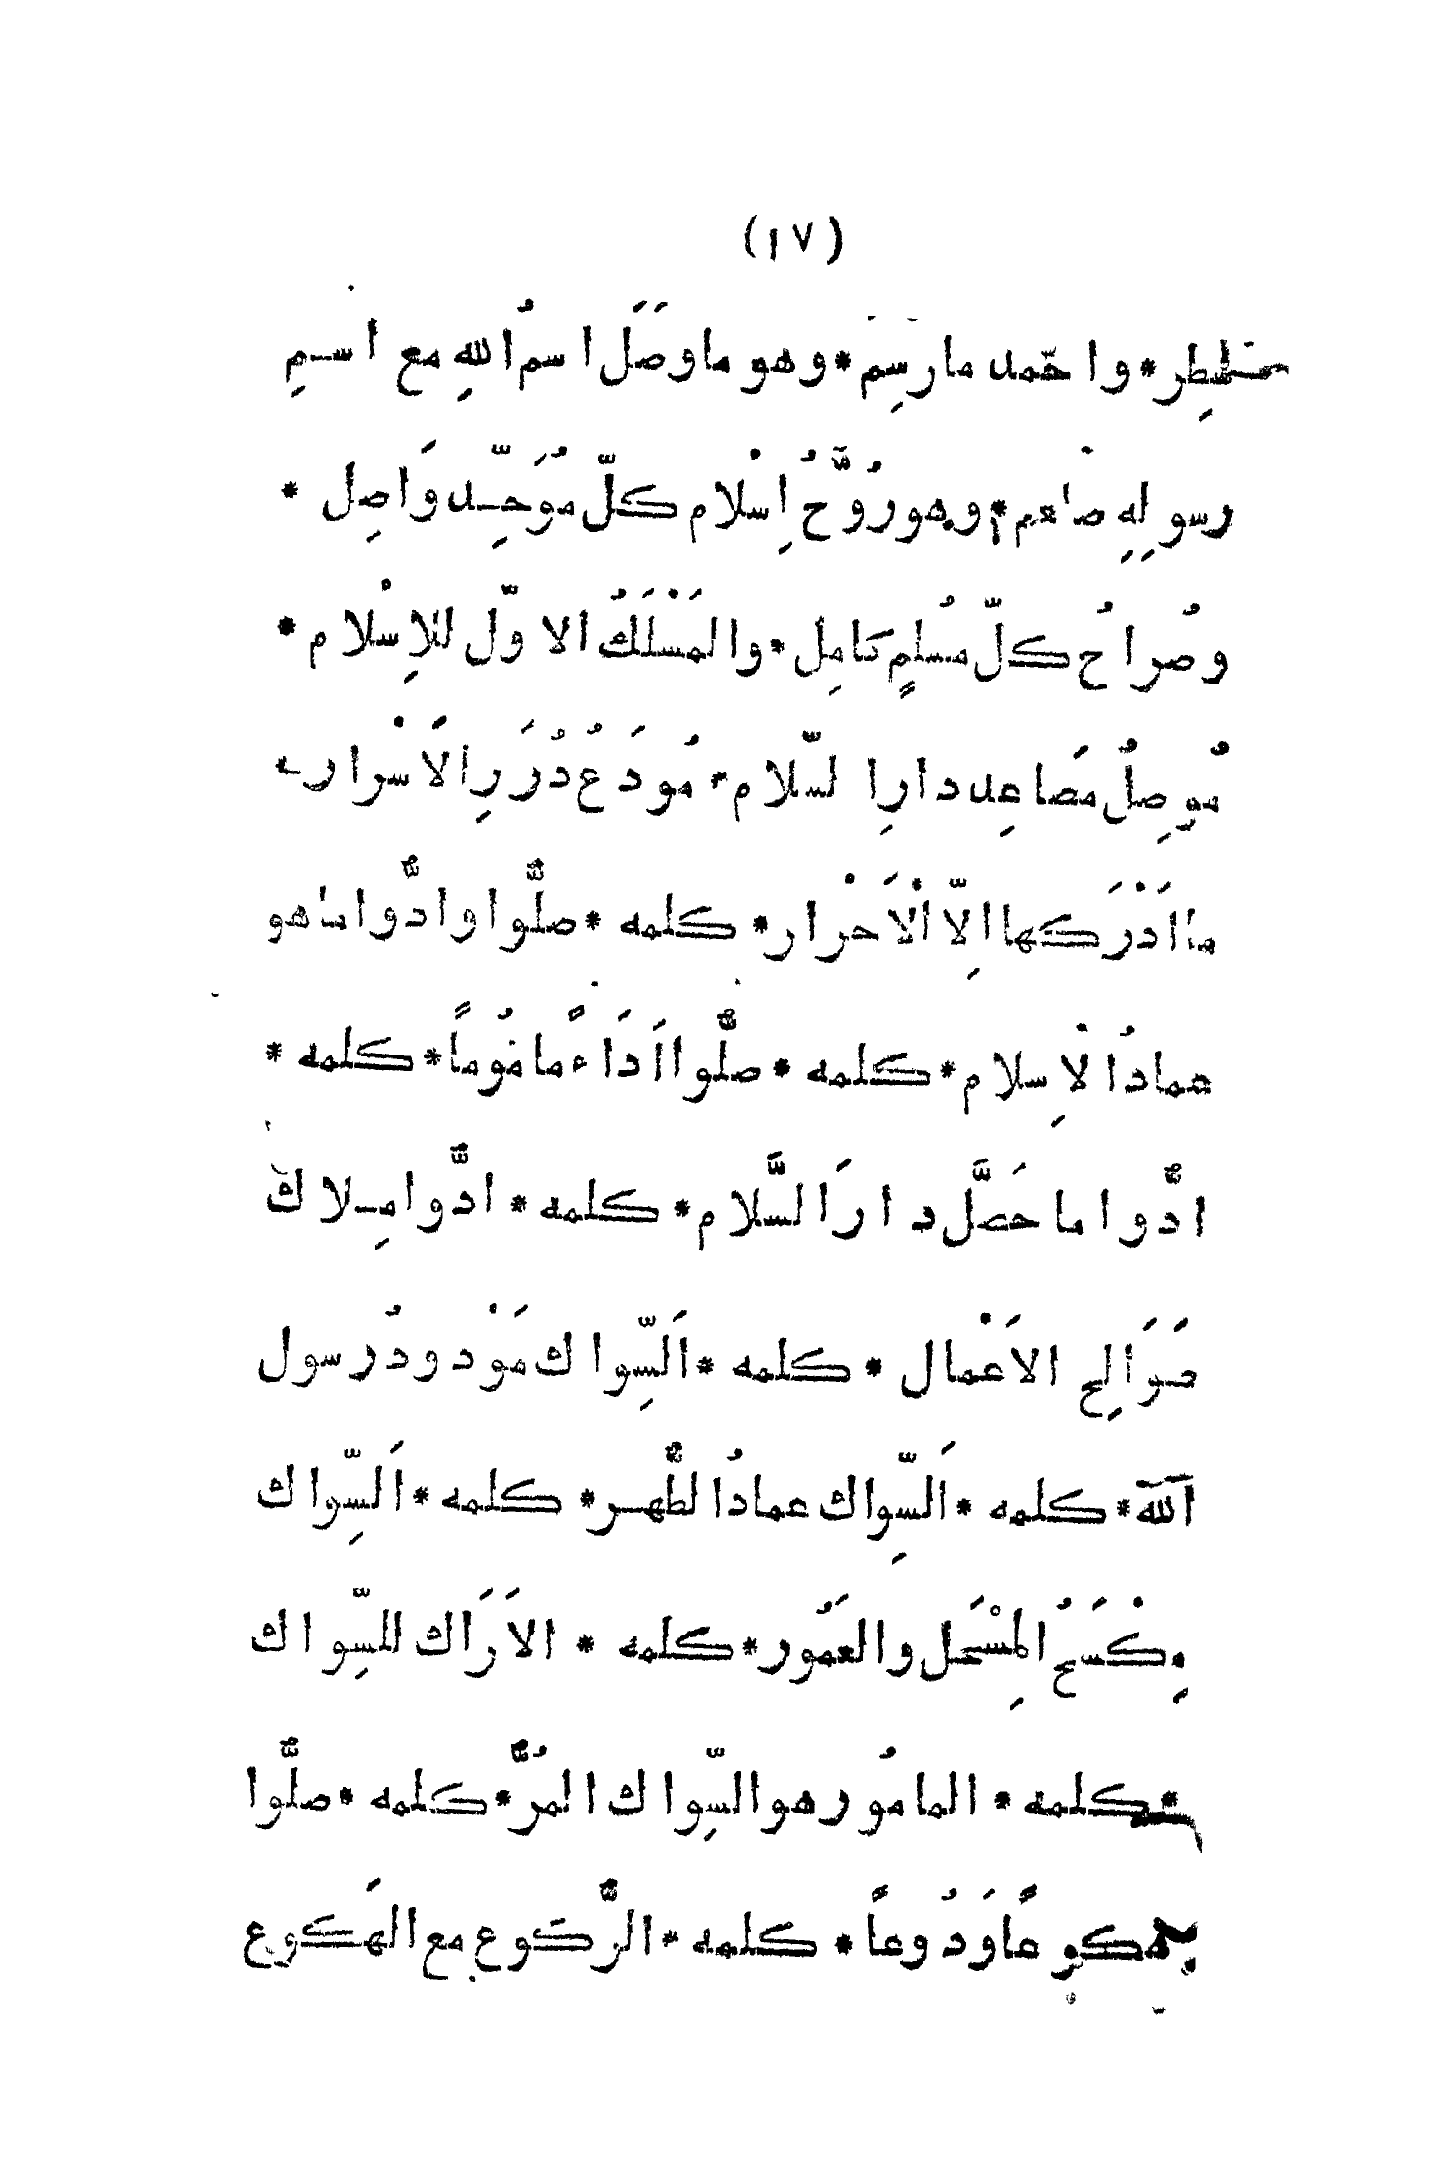 (١٧)
سطِر * واحمد ما رسِم * وهو ما وصَلَ اسمُ اللهِ مع اسمِ
رسولِهِ صلعم * وهو رُوَّحُ إِسْلام كلّ مُوَحِّد وَاصِل *
وصُراحُ كلّ مُسلمٍ كامِل * والمَسْلَكُ الاوّل للاِسْلام *
مُوصِلُ مصَاعِد دارِ السّلام * مُودَعُ دُرَرِ الاَسْرار *
ما اَدْرَكها اِلّا الْاَحْرار * كلمه * صلُّوا وادُّوا ما هو
عمادُ الْاِسلام * كلمه * صلُّوا اَدَاءً مامُوماً * كلمه *
ادُّوا ما حَصَّل دارَ السَّلام * كلمه * ادُّوا مِلاك
صَوَالِح الاَعْمال * كلمه * اَلسِّواك مَوْدودُ رسول
اللّٰه * كلمه * اَلسِّواك عمادُ الطُّهر * كلمه * اَلسِّواك
مِكْسَحُ المِسْحَل والعَمُور * كلمه * الاَرَاك للسِّواك
* كلمه * المامُور هو السِّواك المُرُّ * كلمه * صلُّوا
هكوعاً وَدُوعاً * كلمه * الرُّكوع مع الهَكوع